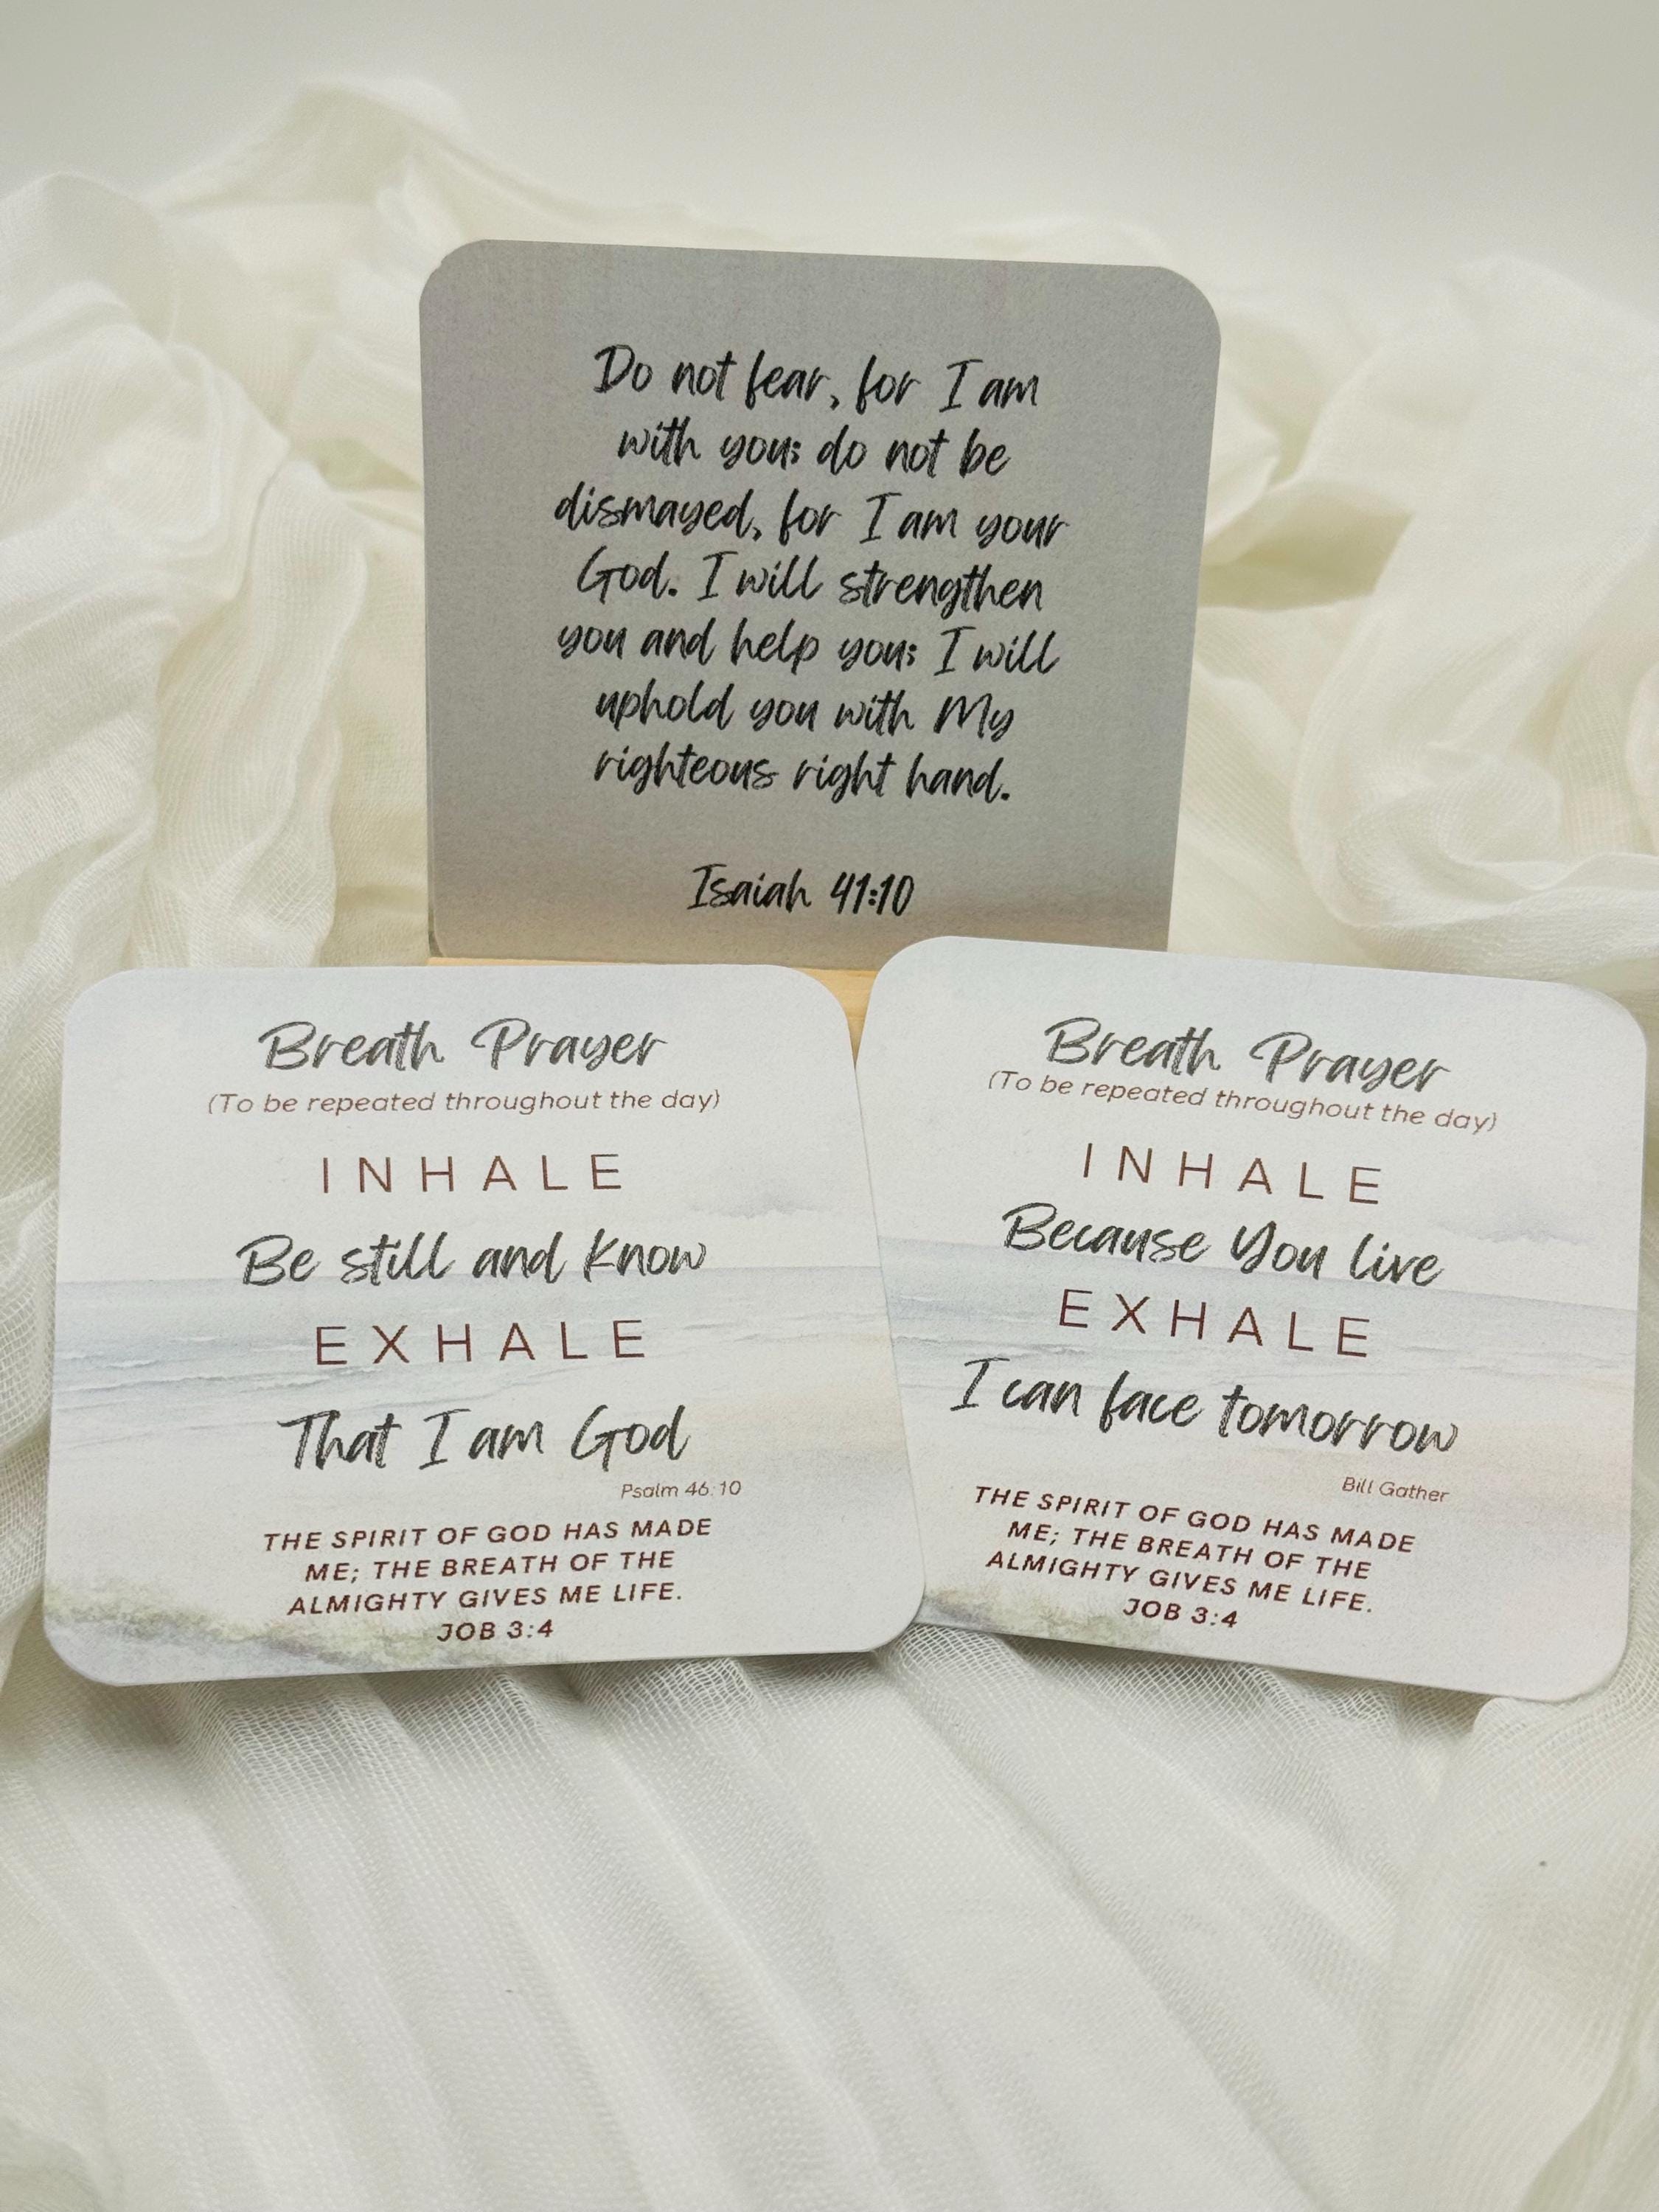 Do not fear, for I am
with you; do not be
dismayed, for I am your
God. I will strengthen
you and help you; I will
uphold you with My
righteous right hand.
Isaiah 41:10
Breath Prayer
(To be repeated throughout the day)
INHALE
Be still and know
EXHALE
That I am God
Psalm 46:10
THE SPIRIT OF GOD HAS MADE
ME; THE BREATH OF THE
ALMIGHTY GIVES ME LIFE.
JOB 3:4
Breath Prayer
(To be repeated throughout the day)
INHALE
Because You live
EXHALE
I can face tomorrow
Bill Gather
THE SPIRIT OF GOD HAS MADE
ME; THE BREATH OF THE
ALMIGHTY GIVES ME LIFE.
JOB 3:4